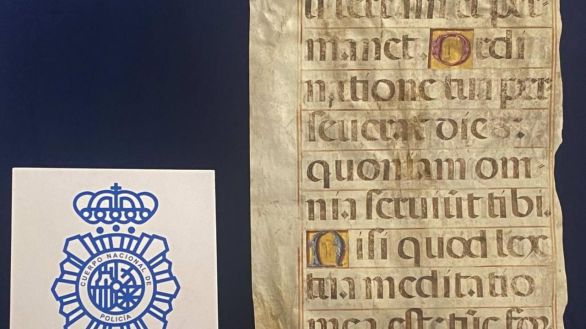 ti terram et per
manet. Ordi
natione tua per
ſeuerat dies:
quoniam om
nia ſeruiūt tibi.
Niſi quod lex
tua meditatio
mea eſt: tūc
CUERPO NACIONAL DE
POLICÍA